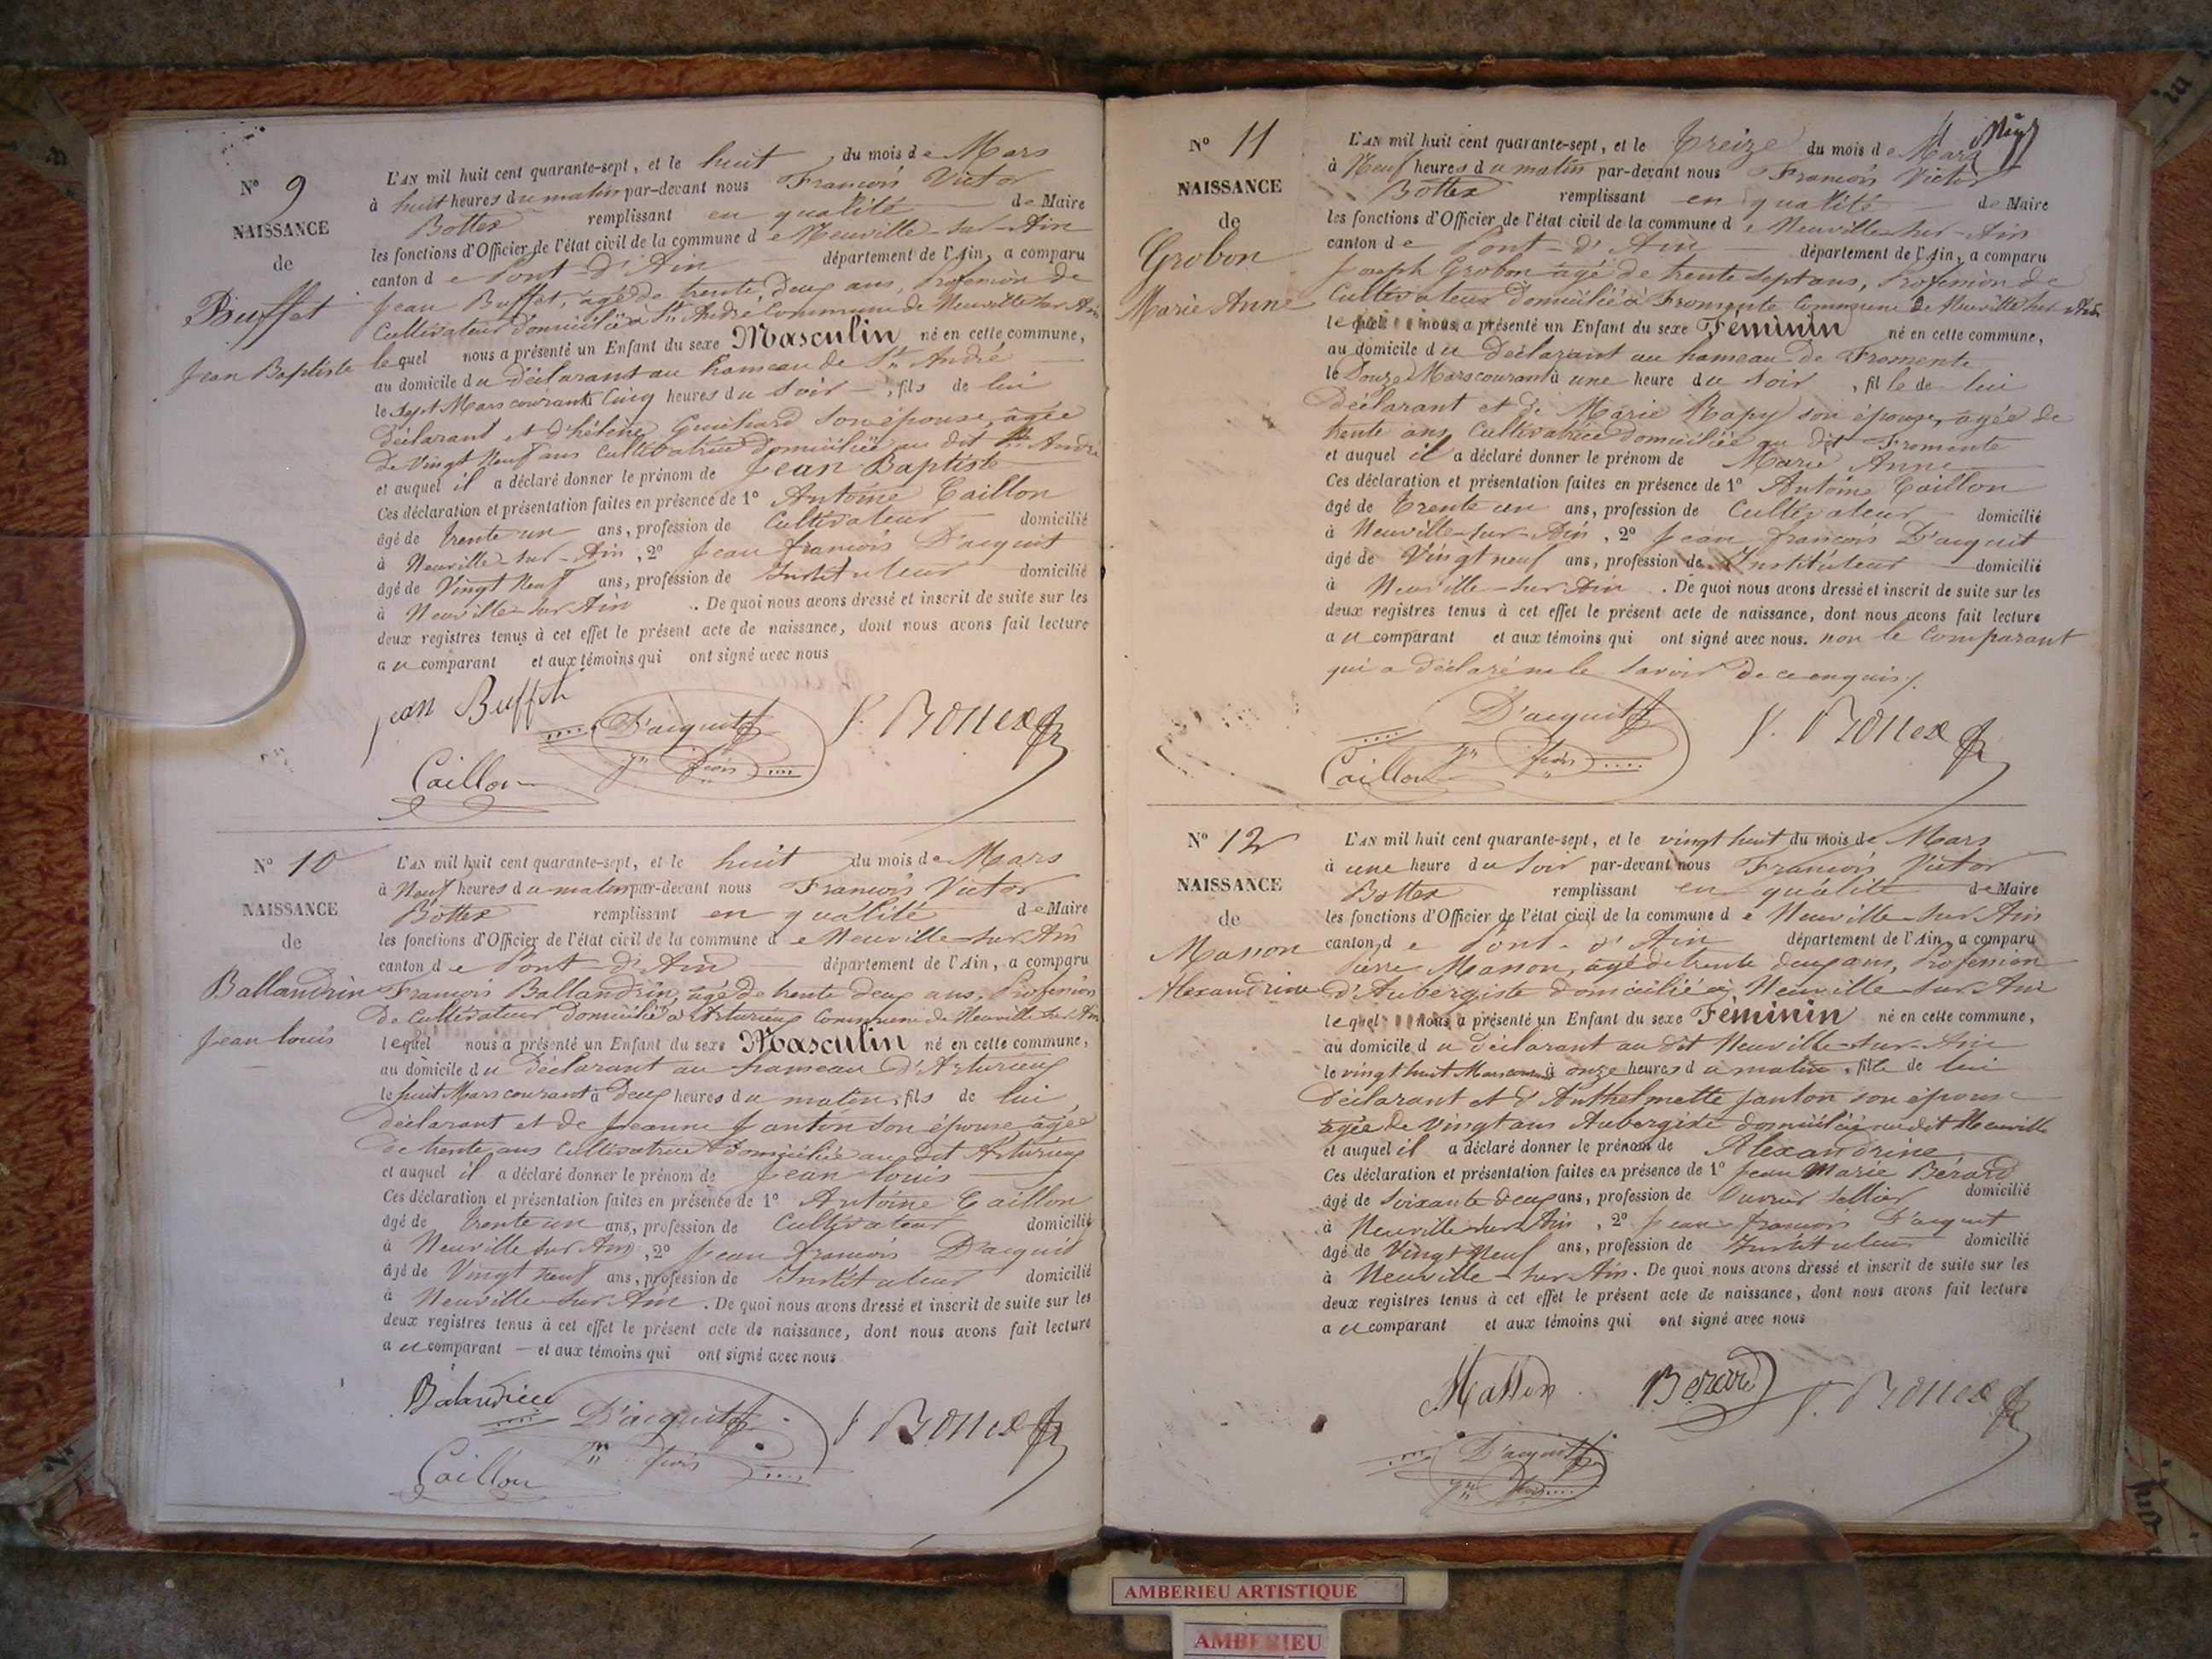 N° 9
NAISSANCE
de
Buffet
Jean Baptiste
L'AN mil huit cent quarante-sept, et le huit du mois de Mars
à huit heures du matin par-devant nous François Victor
Bottex remplissant en qualité de Maire
les fonctions d'Officier de l'état civil de la commune de Neuville-sur-Ain
canton de Pont-d'Ain département de l'Ain, a comparu
Jean Buffet, âgé de trente deux ans, Profession de
Cultivateur domicilié à St André Commune de Neuville sur Ain
lequel nous a présenté un Enfant du sexe Masculin né en cette commune,
au domicile du déclarant au hameau de St André
le sept Mars courant à Cinq heures du soir, fils de lui
déclarant et d'hélène Guichard son épouse, âgée
de Vingt Neuf ans Cultivatrice domiciliée au dit St André
et auquel il a déclaré donner le prénom de Jean Baptiste
Ces déclaration et présentation faites en présence de 1° Antoine Caillon
âgé de trente un ans, profession de Cultivateur domicilié
à Neuville-sur-Ain, 2° Jean françois D'acquit
âgé de Vingt Neuf ans, profession de Instituteur domicilié
à Neuville-sur Ain. De quoi nous avons dressé et inscrit de suite sur les
deux registres tenus à cet effet le présent acte de naissance, dont nous avons fait lecture
au comparant et aux témoins qui ont signé avec nous
jean Buffet D'acquit V. Bottex
Jn fçois
Caillon
N° 10
NAISSANCE
de
Ballandrin
Jean louis
L'AN mil huit cent quarante-sept, et le huit du mois de Mars
à Neuf heures du matin par-devant nous François Victor
Bottex remplissant en qualité de Maire
les fonctions d'Officier de l'état civil de la commune de Neuville-sur Ain
canton de Pont-d'Ain département de l'Ain, a comparu
François Ballandrin, âgé de trente deux ans, Profession
de Cultivateur domicilié à Arturieux Commune de Neuville sur Ain
lequel nous a présenté un Enfant du sexe Masculin né en cette commune,
au domicile du déclarant au hameau d'Arturieux
le huit Mars courant à Deux heures du matin, fils de lui
déclarant et de Jeanne Janton son épouse, âgée
de trente ans Cultivatrice domiciliée au dit Arturieux
et auquel il a déclaré donner le prénom de Jean louis
Ces déclaration et présentation faites en présence de 1° Antoine Caillon
âgé de trente un ans, profession de Cultivateur domicilié
à Neuville sur Ain, 2° Jean françois D'acquit
âgé de Vingt neuf ans, profession de Instituteur domicilié
à Neuville-sur Ain. De quoi nous avons dressé et inscrit de suite sur les
deux registres tenus à cet effet le présent acte de naissance, dont nous avons fait lecture
au comparant et aux témoins qui ont signé avec nous
D'acquit V. Bottex
Jn fçois
Caillon
N° 11
NAISSANCE
de
Grobon
Marie Anne
L'AN mil huit cent quarante-sept, et le Treize du mois de Mars
à Neuf heures du matin par-devant nous François Victor
Bottex remplissant en qualité de Maire
les fonctions d'Officier de l'état civil de la commune de Neuville-sur-Ain
canton de Pont-d'Ain département de l'Ain, a comparu
Joseph Grobon âgé de trente sept ans, Profession de
Cultivateur domicilié à Fromente Commune de Neuville sur Ain
lequel nous a présenté un Enfant du sexe Féminin né en cette commune,
au domicile du Déclarant au hameau de Fromente
le Douze Mars courant à une heure du soir, fille de lui
déclarant et de Marie Rapy son épouse, âgée de
trente ans, Cultivatrice domiciliée au dit Fromente
et auquel il a déclaré donner le prénom de Marie Anne
Ces déclaration et présentation faites en présence de 1° Antoine Caillon
âgé de Trente un ans, profession de Cultivateur domicilié
à Neuville-sur-Ain, 2° Jean françois D'acquit
âgé de Vingt neuf ans, profession de Instituteur domicilié
à Neuville-sur Ain. De quoi nous avons dressé et inscrit de suite sur les
deux registres tenus à cet effet le présent acte de naissance, dont nous avons fait lecture
au comparant et aux témoins qui ont signé avec nous. non le Comparant
qui a déclaré ne le savoir de ce enquis /.
D'acquit V. Bottex
Jn fçois
Caillon
N° 12
NAISSANCE
de
Masson
Alexandrine
L'AN mil huit cent quarante-sept, et le vingt huit du mois de Mars
à une heure du Soir par-devant nous François Victor
Bottex remplissant en qualité de Maire
les fonctions d'Officier de l'état civil de la commune de Neuville-sur Ain
canton de Pont-d'Ain département de l'Ain, a comparu
Pierre Masson, âgé de trente deux ans, Profession
d'Aubergiste domicilié à Neuville sur Ain
lequel nous a présenté un Enfant du sexe Féminin né en cette commune,
au domicile du déclarant au dit Neuville-sur-Ain
le vingt huit Mars courant à onze heures du matin, fille de lui
déclarant et d'Anthelmette Janton son épouse
âgée de Vingt ans Aubergiste domiciliée au dit Neuville
et auquel il a déclaré donner le prénom de Alexandrine
Ces déclaration et présentation faites en présence de 1° Jean Marie Bérard
âgé de Soixante deux ans, profession de Ouvrier Sellier domicilié
à Neuville sur Ain, 2° Jean françois D'acquit
âgé de Vingt Neuf ans, profession de Instituteur domicilié
à Neuville-sur Ain. De quoi nous avons dressé et inscrit de suite sur les
deux registres tenus à cet effet le présent acte de naissance, dont nous avons fait lecture
au comparant et aux témoins qui ont signé avec nous
Masson Berard V. Bottex
D'acquit
Jn fçois
AMBERIEU ARTISTIQUE
AMBERIEU